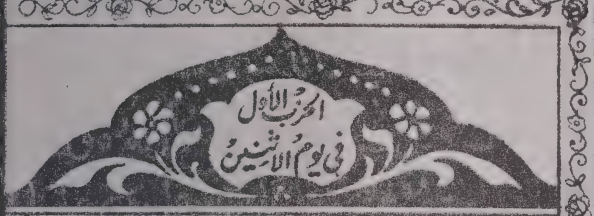 الحزب الأول
في يوم الاثنين